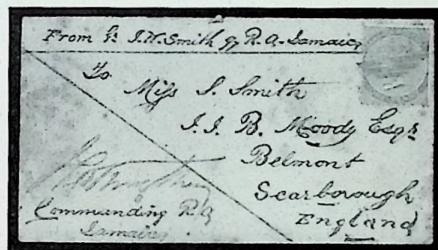 From J. W. Smith R. A. Jamaica
To
Miss S. Smith
J. J. B. Moody Esqr
Belmont
Scarborough
England
Commanding R A
Jamaica